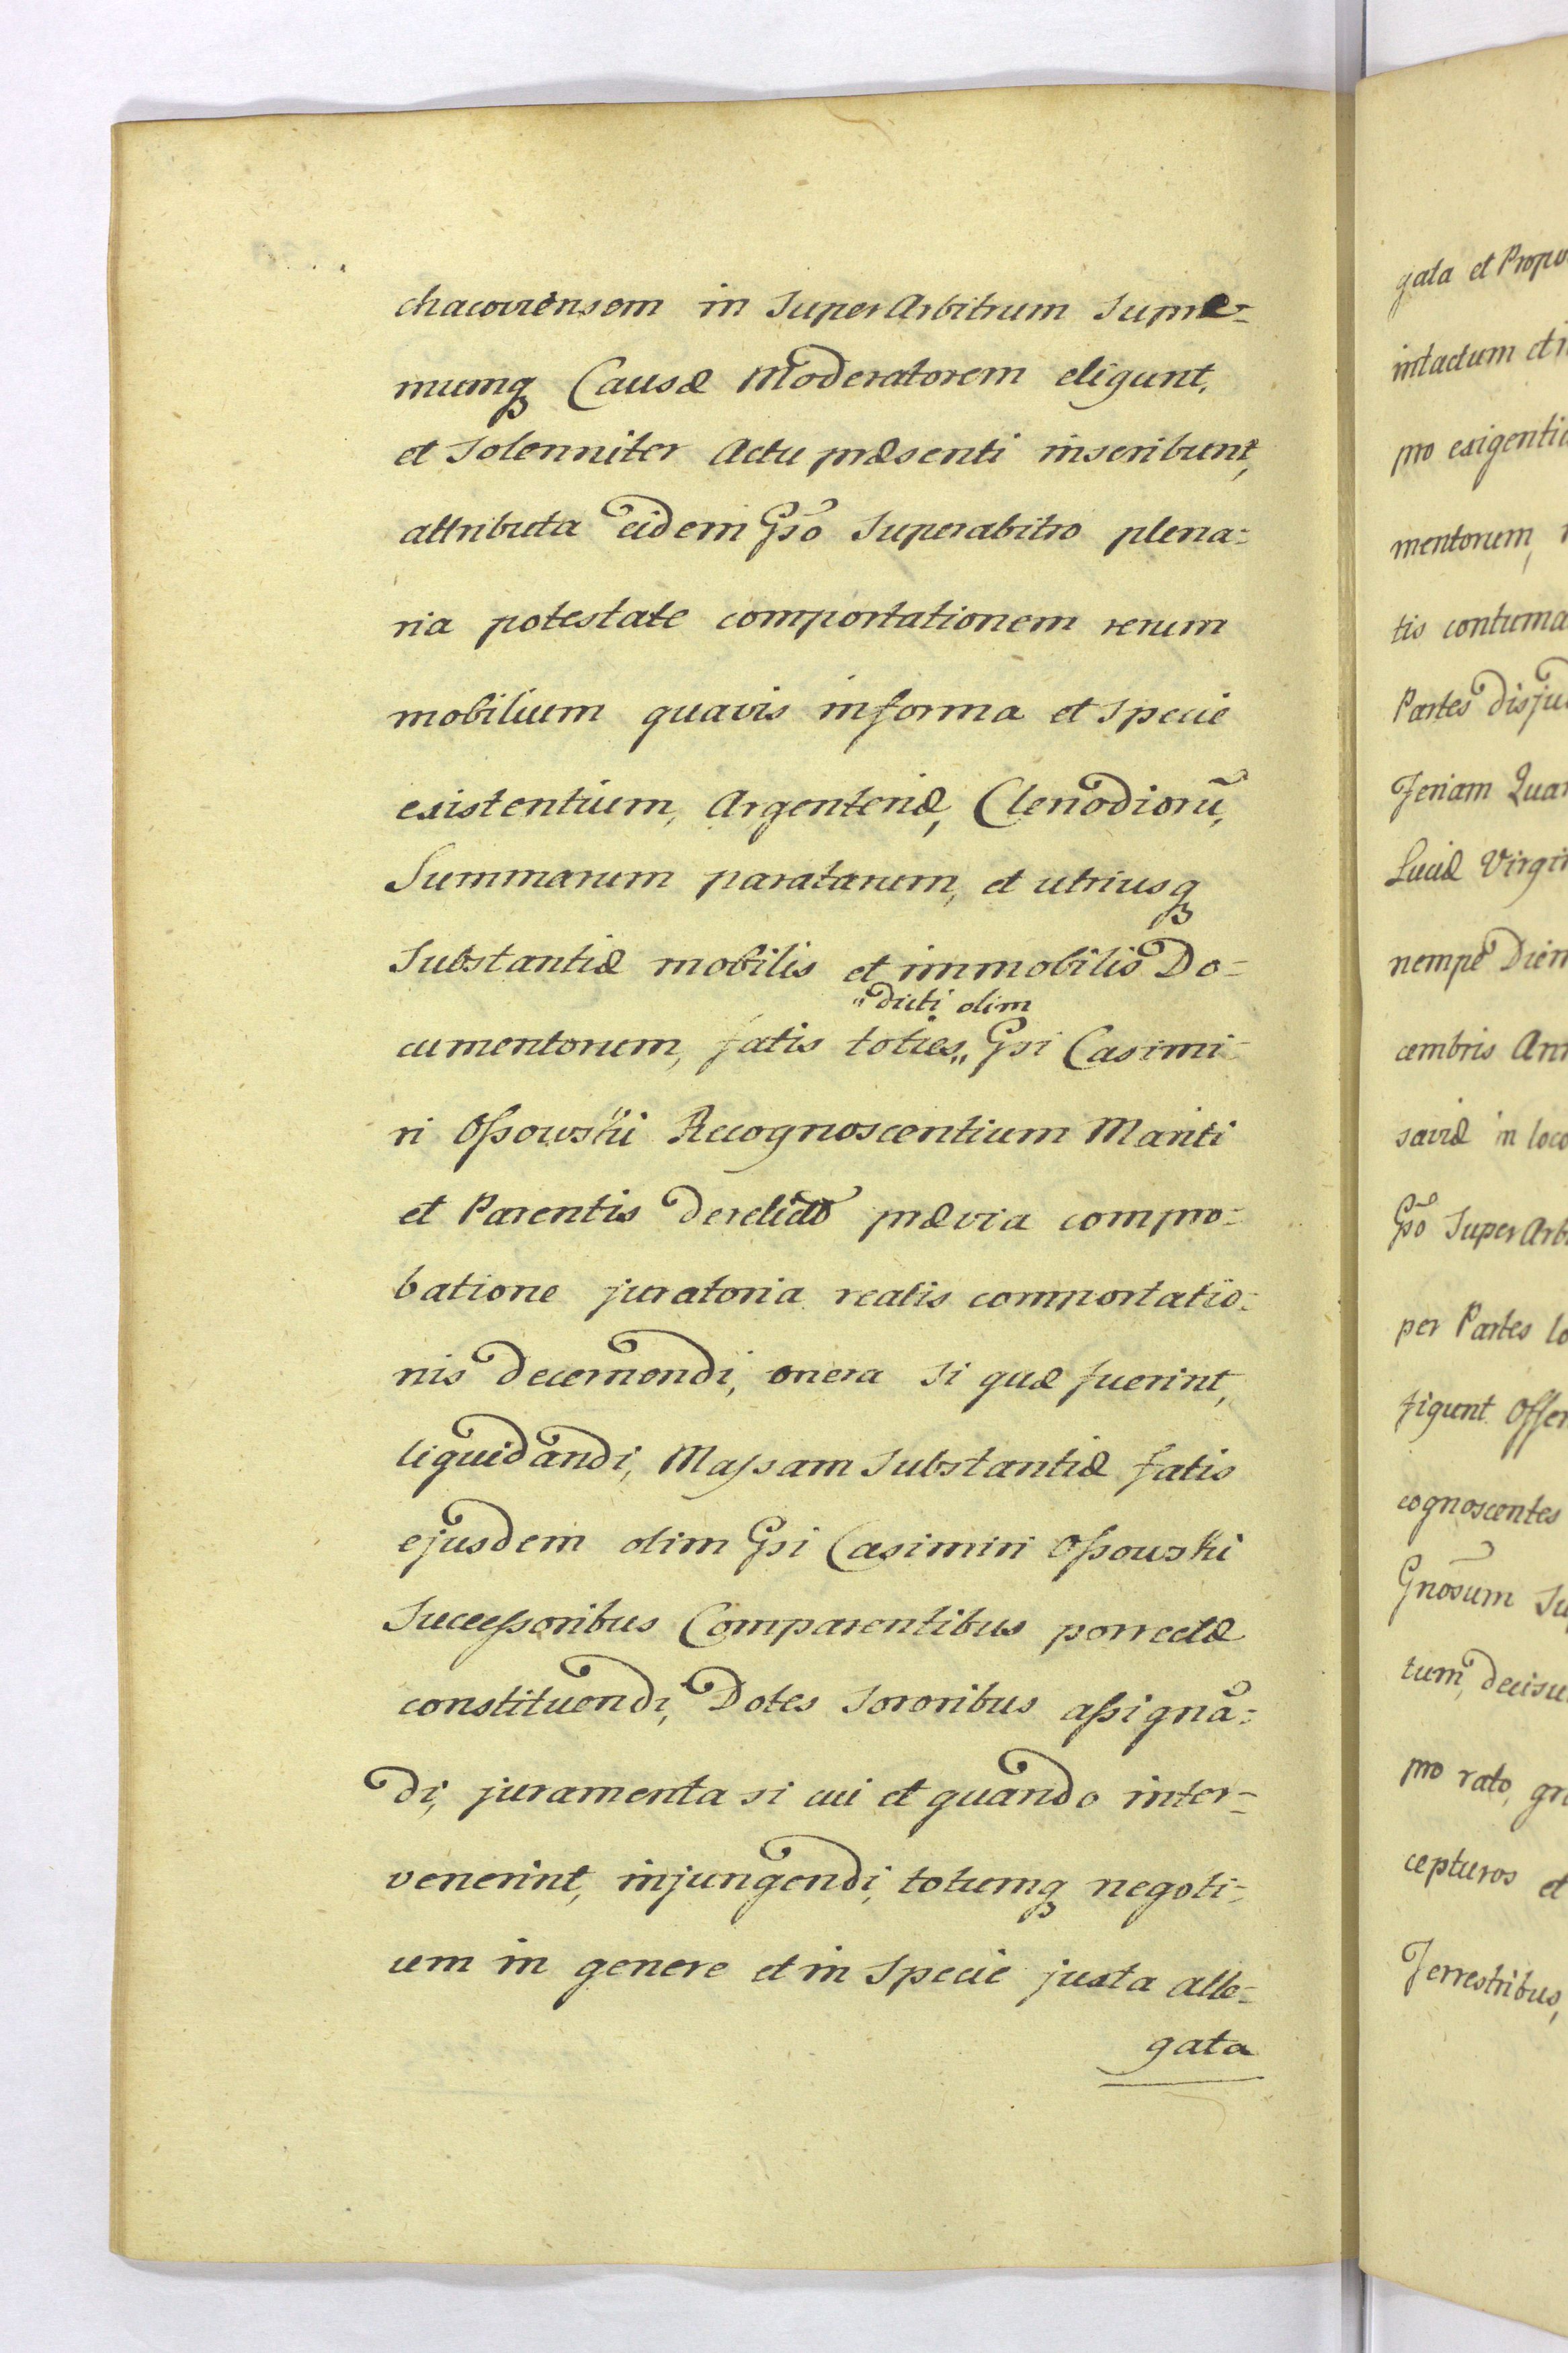 chacoviensem in SuperArbitrum Supre=
mumq Causæ Moderatorem eligunt,
et Solenniter Actu præsenti inscribunt,
attributa eidem Gso Superabitro plena=
ria potestate comportationem rerum
mobilium quavis informa et Specie
existentium, Argenteriæ, Clenodiorū,
Summarum paratarum, et utriusq
Substantiæ mobilis et immobilis Do=
"dicti olim
cumentorum, fatis toties,, Gsi Casimi=
ri Ossowski Recognoscentium Mariti
et Parentis derelicto prævia compro=
batione juratoria realis comportatio=
nis decernendi, onera Si quæ fuerint,
liquidandi, Massam Substantiæ fatis
ejusdem olim Gsi Casimiri Ossowski
Successoribus Comparentibus porrectæ
constituendi, Dotes Sororibus assignā=
di, juramenta si cui et quando inter=
venerint, injungendi, totumq negoti=
um in genere et in Specie juxta alle=
gata
gata et Propo
intactum et i
pro exigentia
mentorum,
tis contuma
Partes disju
Feriam Quar
Luciæ Virgin
nempe Diem
cembris Ann
saviæ in loco
Gso SuperArbi
per Partes lo
figunt. Offer
cognoscentes
Gnosum Su
tum, decisu
pro rato, gra
cepturos et
Terrestribus,